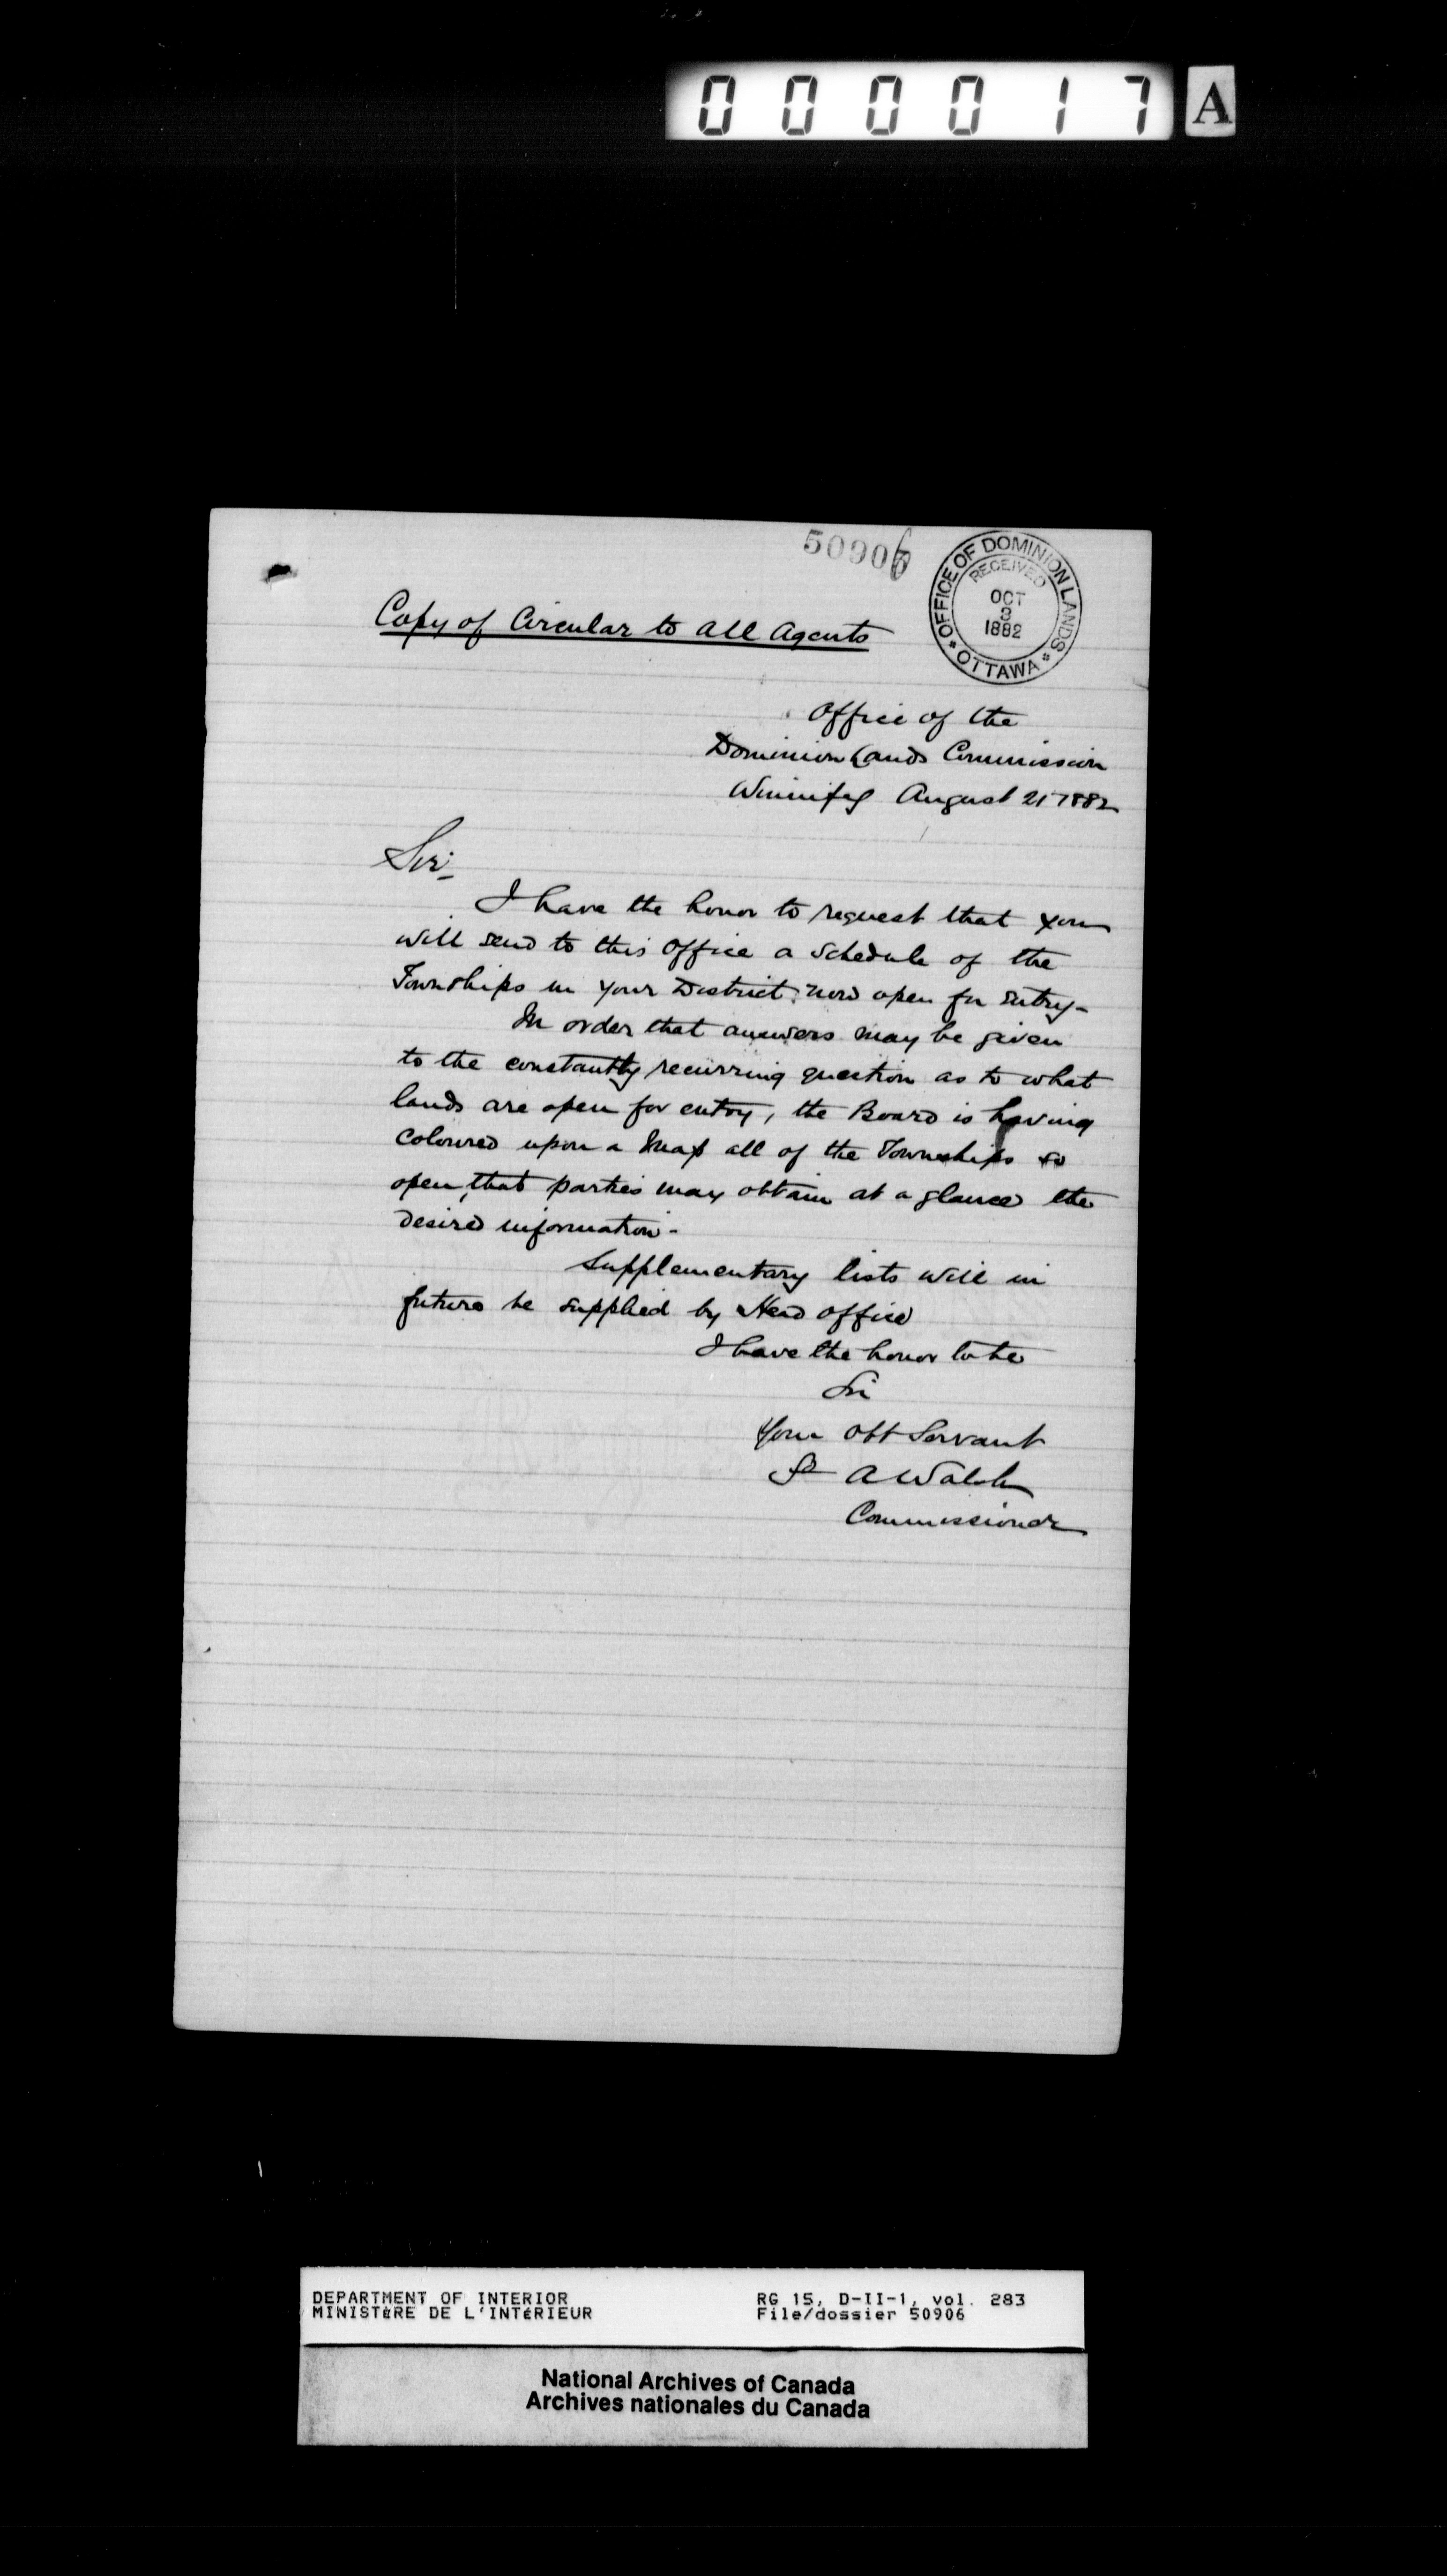 000017 A
50906
OFFICE OF DOMINION LANDS
RECEIVED
OCT
3
1882
OTTAWA
Copy of Circular to all Agents
Office of the
Dominion Lands Commission
Winnipeg August 21 1882
Sir,
I have the honor to request that you
will send to this office a Schedule of the
Townships in your District now open for entry -
In order that answers may be given
to the constantly recurring question as to what
lands are open for entry, the Board is having
coloured upon a Map all of the Townships so
open, that parties may obtain at a glance the
desired information -
Supplementary lists will in
future be supplied by Head office
I have the honor to be
Sir
Your Obt Servant
Sd A Walsh
Commissioner
DEPARTMENT OF INTERIOR
MINISTÈRE DE L'INTÉRIEUR
RG 15, D-II-1, vol. 283
File/dossier 50906
National Archives of Canada
Archives nationales du Canada